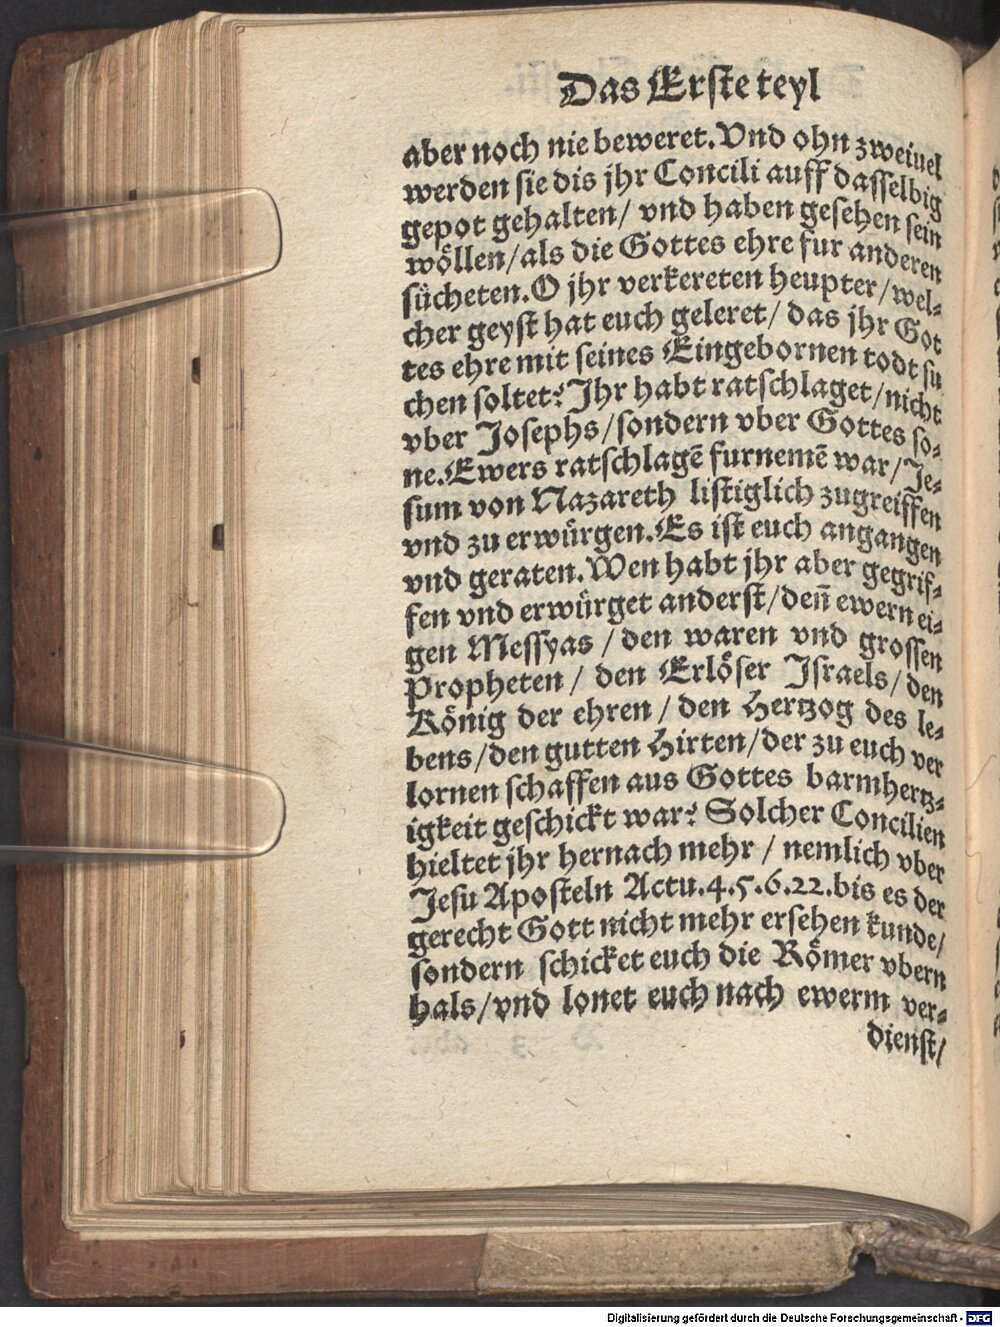 Das Erste teyl
aber noch nie beweret. Vnd ohn zweiuel
werden sie dis jhr Concili auff dasselbig
gepot gehalten/ vnd haben gesehen sein
wöllen/als die Gottes ehre fur anderen
sücheten. O jhr verkereten heupter/wel-
cher geyst hat euch geleret/ das jhr Got
tes ehre mit seines Eingebornen todt su
chen soltet? Jhr habt ratschlaget/nicht
vber Josephs/sondern vber Gottes so-
ne. Ewers ratschlagē furnemē war/Je-
sum von Nazareth listiglich zugreiffen
vnd zu erwürgen. Es ist euch angangen
vnd geraten. Wen habt jhr aber gegrif-
fen vnd erwürget anderst/deñ ewern ei-
gen Messyas / den waren vnd grossen
Propheten / den Erlöser Israels/den
König der ehren / den Hertzog des le-
bens/den gutten Hirten/der zu euch ver
lornen schaffen aus Gottes barmhertz-
igkeit geschickt war? Solcher Concilien
hieltet jhr hernach mehr / nemlich vber
Jesu Aposteln Actu.4.5.6.22.bis es der
gerecht Gott nicht mehr ersehen kunde/
sondern schicket euch die Römer vbern
hals/vnd lonet euch nach ewerm ver-
dienst/
Digitalisierung gefördert durch die Deutsche Forschungsgemeinschaft - DFG